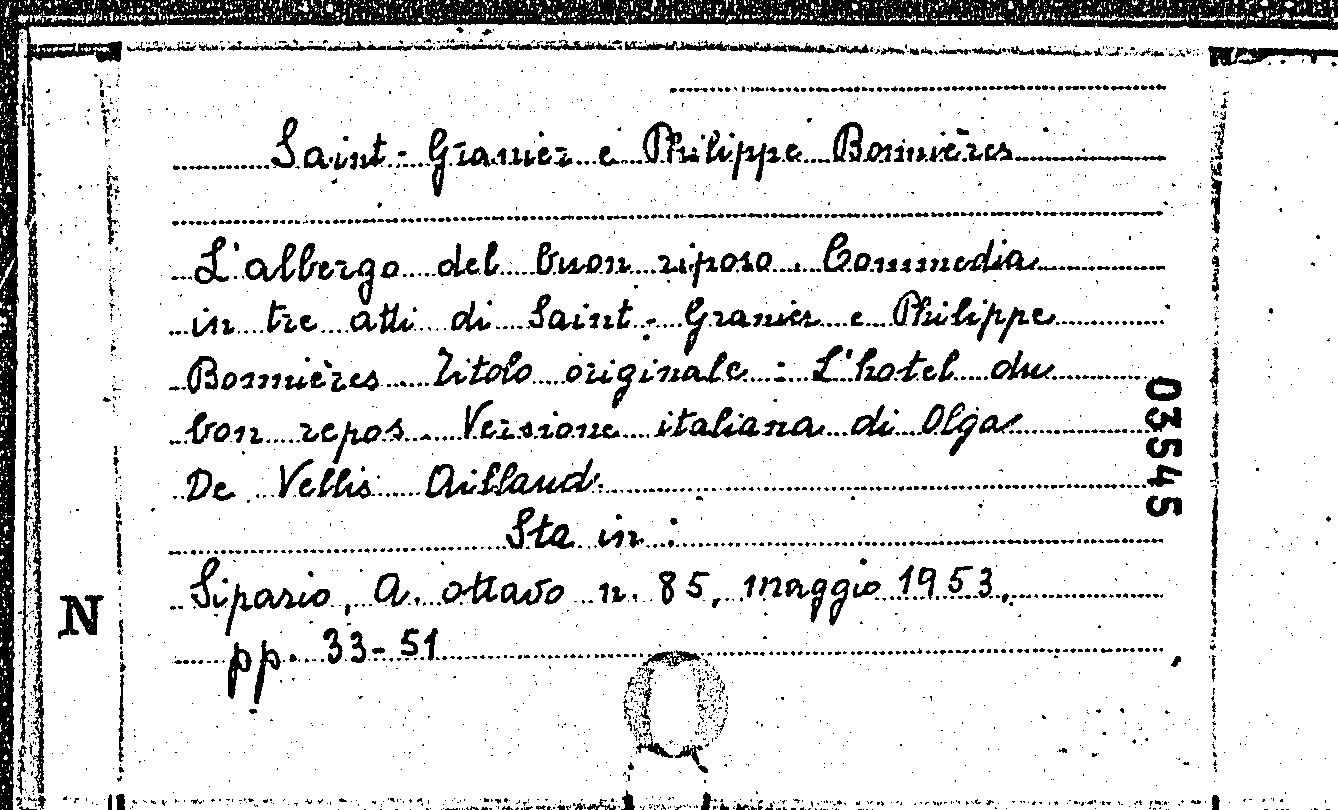 Saint-Granier e Philippe Bonnières
L'albergo del buon riposo. Commedia
in tre atti di Saint-Granier e Philippe
Bonnières. Titolo originale: L'hotel du
bon repos. Versione italiana di Olga
De Vellis Aillaud.
Sta in:
Sipario, A. ottavo n. 85, maggio 1953,
pp. 33-51
03545
N